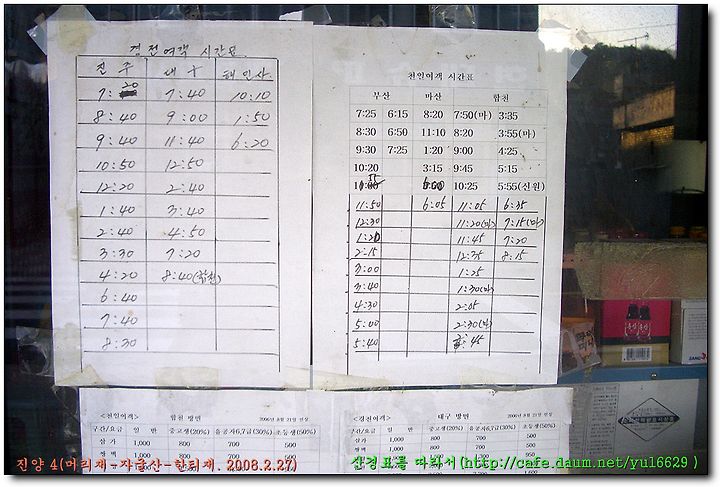 경전여객 시간표
진주 대구 해인사
7:20 7:40 10:10
8:40 9:00 1:50
9:40 11:40 6:20
10:50 12:50
12:20 2:40
1:40 3:40
2:40 4:50
3:30 7:20
4:20 8:40(합천)
6:40
7:40
8:30
천일여객 시간표
부산 마산 합천
7:25 6:15 8:20 7:50(마) 3:35
8:30 6:50 11:10 8:20 3:55(마)
9:30 7:25 1:20 9:00 4:25
10:20 3:15 9:45 5:15
10:25 5:55(신원)
11:50 6:05 11:05 6:35
12:30 11:20(마) 7:15(마)
1:20 11:45 7:20
2:15 12:35 8:15
3:00 1:25
3:40 1:30(마)
4:30 2:05
5:00 2:30(마)
5:40
<천일여객> 합천 방면 2006년 8월 21일 현재
구간/요금 일반 중고생(20%) 유공자6,7급(30%) 초등생(50%)
삼가 1,000 800 700 500
쌍백 1,000 800 700 500
<경전여객> 대구 방면 2006년 8월 21일 현재
구간/요금 일반 중고생(20%) 유공자6,7급(30%) 초등생(50%)
삼가 1,000 800 700 500
쌍백 1,000 800 700 500
진양 4(머리재-자굴산-한티재. 2008.2.27)
산경표를 따라서(http://cafe.daum.net/yul6629 )